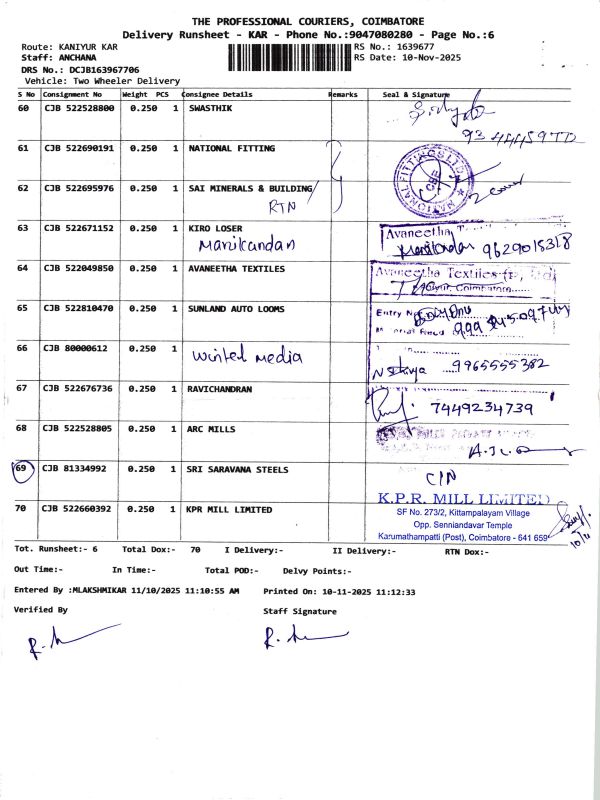 THE PROFESSIONAL COURIERS, COIMBATORE
Delivery Runsheet - KAR - Phone No.:9047080280 - Page No.:6
Route: KANIYUR KAR
RS No.: 1639677
Staff: ANCHANA
RS Date: 10-Nov-2025
DRS No.: DCJB163967706
Vehicle: Two Wheeler Delivery
S No Consignment No Weight PCS Consignee Details Remarks Seal & Signature
60 CJB 522528800 0.250 1 SWASTHIK
61 CJB 522690191 0.250 1 NATIONAL FITTING
NATIONAL FITTINGS LTD
CBE
62 CJB 522695976 0.250 1 SAI MINERALS & BUILDING/
RTN
63 CJB 522671152 0.250 1 KIRO LOSER
Avaneetha
Manikandan
Manikandan 9629015318
64 CJB 522049850 0.250 1 AVANEETHA TEXTILES
Avaneetha Textiles (P) Ltd
Coimbatore
65 CJB 522810470 0.250 1 SUNLAND AUTO LOOMS
Entry No
66 CJB 80000612 0.250 1
Winted media
9965555382
67 CJB 522676736 0.250 1 RAVICHANDRAN
7449234739
68 CJB 522528805 0.250 1 ARC MILLS
69 CJB 81334992 0.250 1 SRI SARAVANA STEELS
C/N
70 CJB 522660392 0.250 1 KPR MILL LIMITED
K.P.R. MILL LIMITED
SF No. 273/2, Kittampalayam Village
Opp. Senniandavar Temple
Karumathampatti (Post), Coimbatore - 641 659
10/11
Tot. Runsheet:- 6 Total Dox:- 70 I Delivery:- II Delivery:- RTN Dox:-
Out Time:- In Time:- Total POD:- Delvy Points:-
Entered By :MLAKSHMIKAR 11/10/2025 11:10:55 AM Printed On: 10-11-2025 11:12:33
Verified By Staff Signature